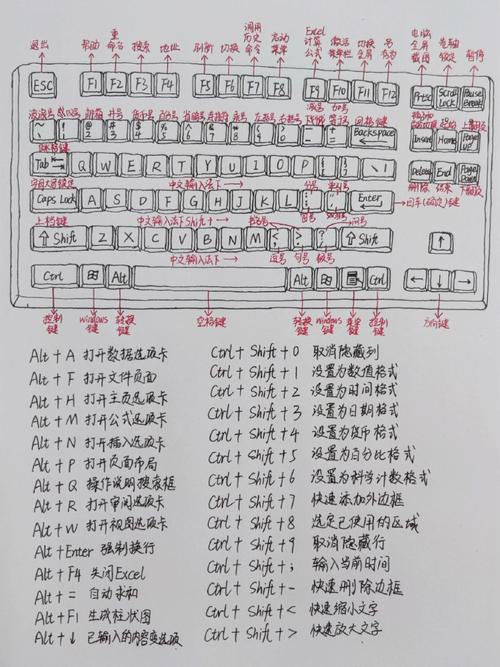 退出 帮助 重命名 搜索 地址 刷新 切换 调用历史命令 启动菜单 Excel计算公式 激活菜单栏 切换全屏 另存为 电脑全屏截图 暂停
ESC F1 F2 F3 F4 F5 F6 F7 F8 F9 F10 F11 F12 Prtsc Scroll Lock Pause Break
井号 回格键
Backspace Insert Home Page UP
Tab Q W E R T Y U I O P
Delete End
中文输入法下→ 删除 结束
Caps Lock A S D F G H J K L Enter
回车(确定)键
上档键 中文输入法下Shift+
⇧ Shift Z X C V B N M ⇧ Shift ↑
中文输入法下→ 逗号 句号
Ctrl Alt Alt Ctrl ← ↓ →
控制键 windows键 转换键 空格键 转换键 windows键 菜单键 控制键 方向键
Alt + A 打开数据选项卡
Alt + F 打开文件页面
Alt + H 打开主页选项卡
Alt + M 打开公式选项卡
Alt + N 打开插入选项卡
Alt + P 打开页面布局
Alt + Q 操作说明搜索框
Alt + R 打开审阅选项卡
Alt + W 打开视图选项卡
Alt +Enter 强制换行
Alt + F4 关闭Excel
Alt + = 自动求和
Alt + F1 生成柱状图
Alt + ↓ 已输入的内容变选项
Ctrl + Shift + 0 取消隐藏列
Ctrl + Shift + 1 设置为数值格式
Ctrl + Shift + 2 设置为时间格式
Ctrl + Shift + 3 设置为日期格式
Ctrl + Shift + 4 设置为货币格式
Ctrl + Shift + 5 设置为百分比格式
Ctrl + Shift + 6 设置为科学计数格式
Ctrl + Shift + 7 快速添加外边框
Ctrl + Shift + 8 选定已使用的区域
Ctrl + Shift + 9 取消隐藏行
Ctrl + Shift + ; 输入当前时间
Ctrl + Shift + - 快速删除边框
Ctrl + Shift + < 快速缩小文字
Ctrl + Shift + > 快速放大文字